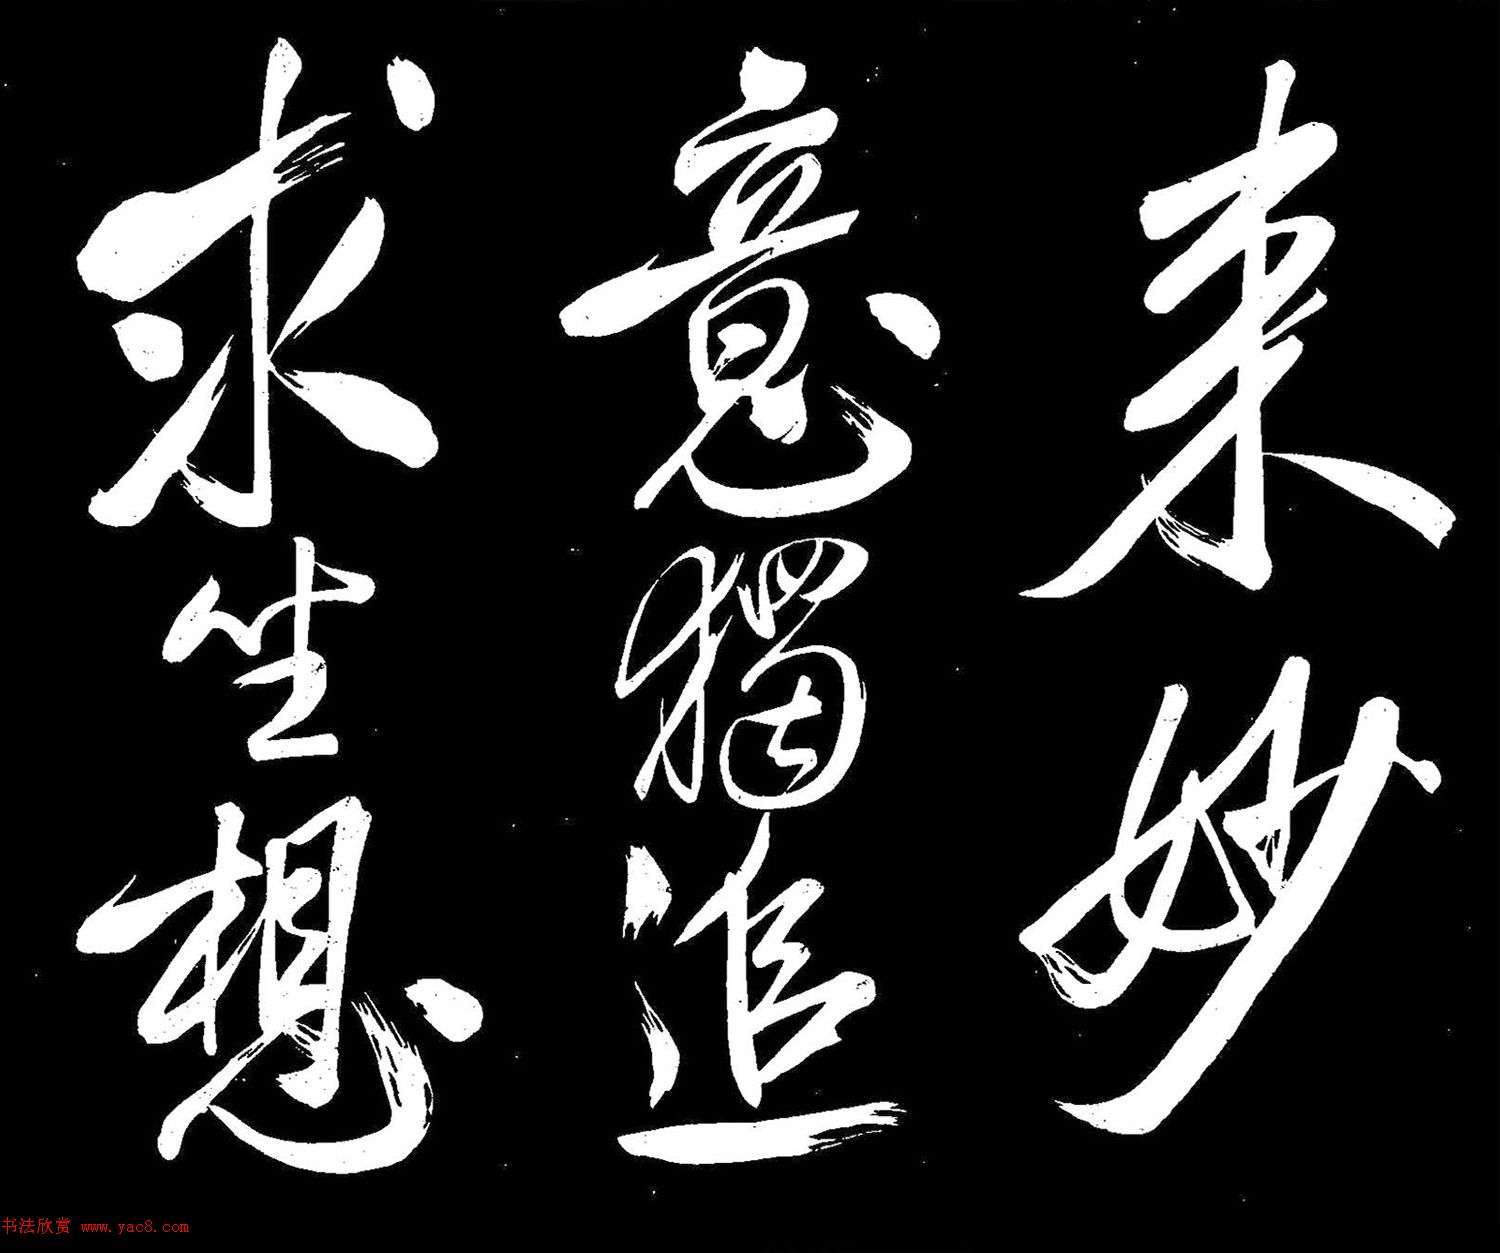 來妙
意獨追
求坐想
书法欣赏 www.yac8.com